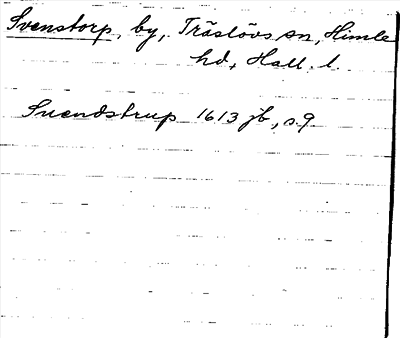 Svenstorp, by, Träslövs sn, Himle
hd, Hall. l.
Suendstrup 1613 jb, s. 9